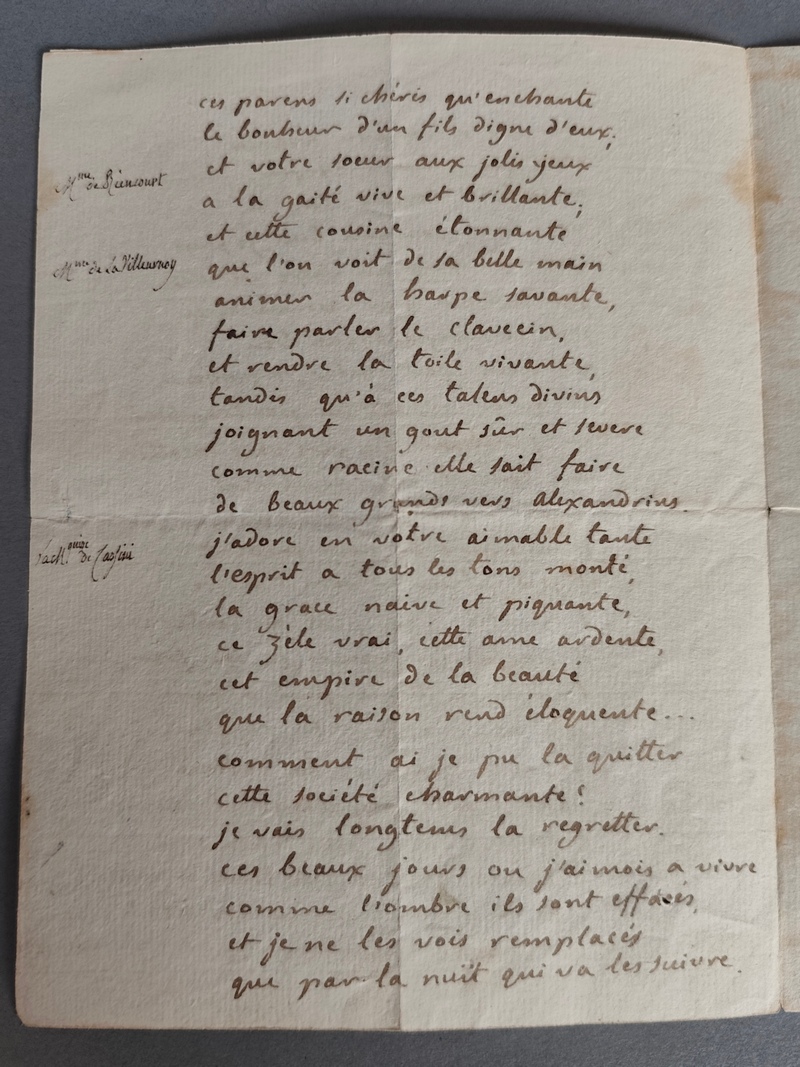 ces parens si chéris qu'enchante
le bonheur d'un fils digne d'eux,
et votre soeur aux jolis yeux
Mme de Riencourt
a la gaité vive et brillante;
et cette cousine étonnante
Mme de la Villeurnoy
que l'on voit de sa belle main
animer la harpe savante,
faire parler le clavecin,
et rendre la toile vivante,
tandis qu'à ces talens divins
joignant un gout sûr et severe
comme racine elle sait faire
de beaux grands vers alexandrins.
la Mquise de Cassini
j'adore en votre aimable tante
l'esprit a tous les tons monté,
la grace naive et piquante,
ce zèle vrai, cette ame ardente,
cet empire de la beauté
que la raison rend éloquente...
comment ai je pu la quitter
cette société charmante!
je vais longtems la regretter.
ces beaux jours ou j'aimois a vivre
comme l'ombre ils sont effacés,
et je ne les vois remplacés
que par la nuit qui va les suivre.